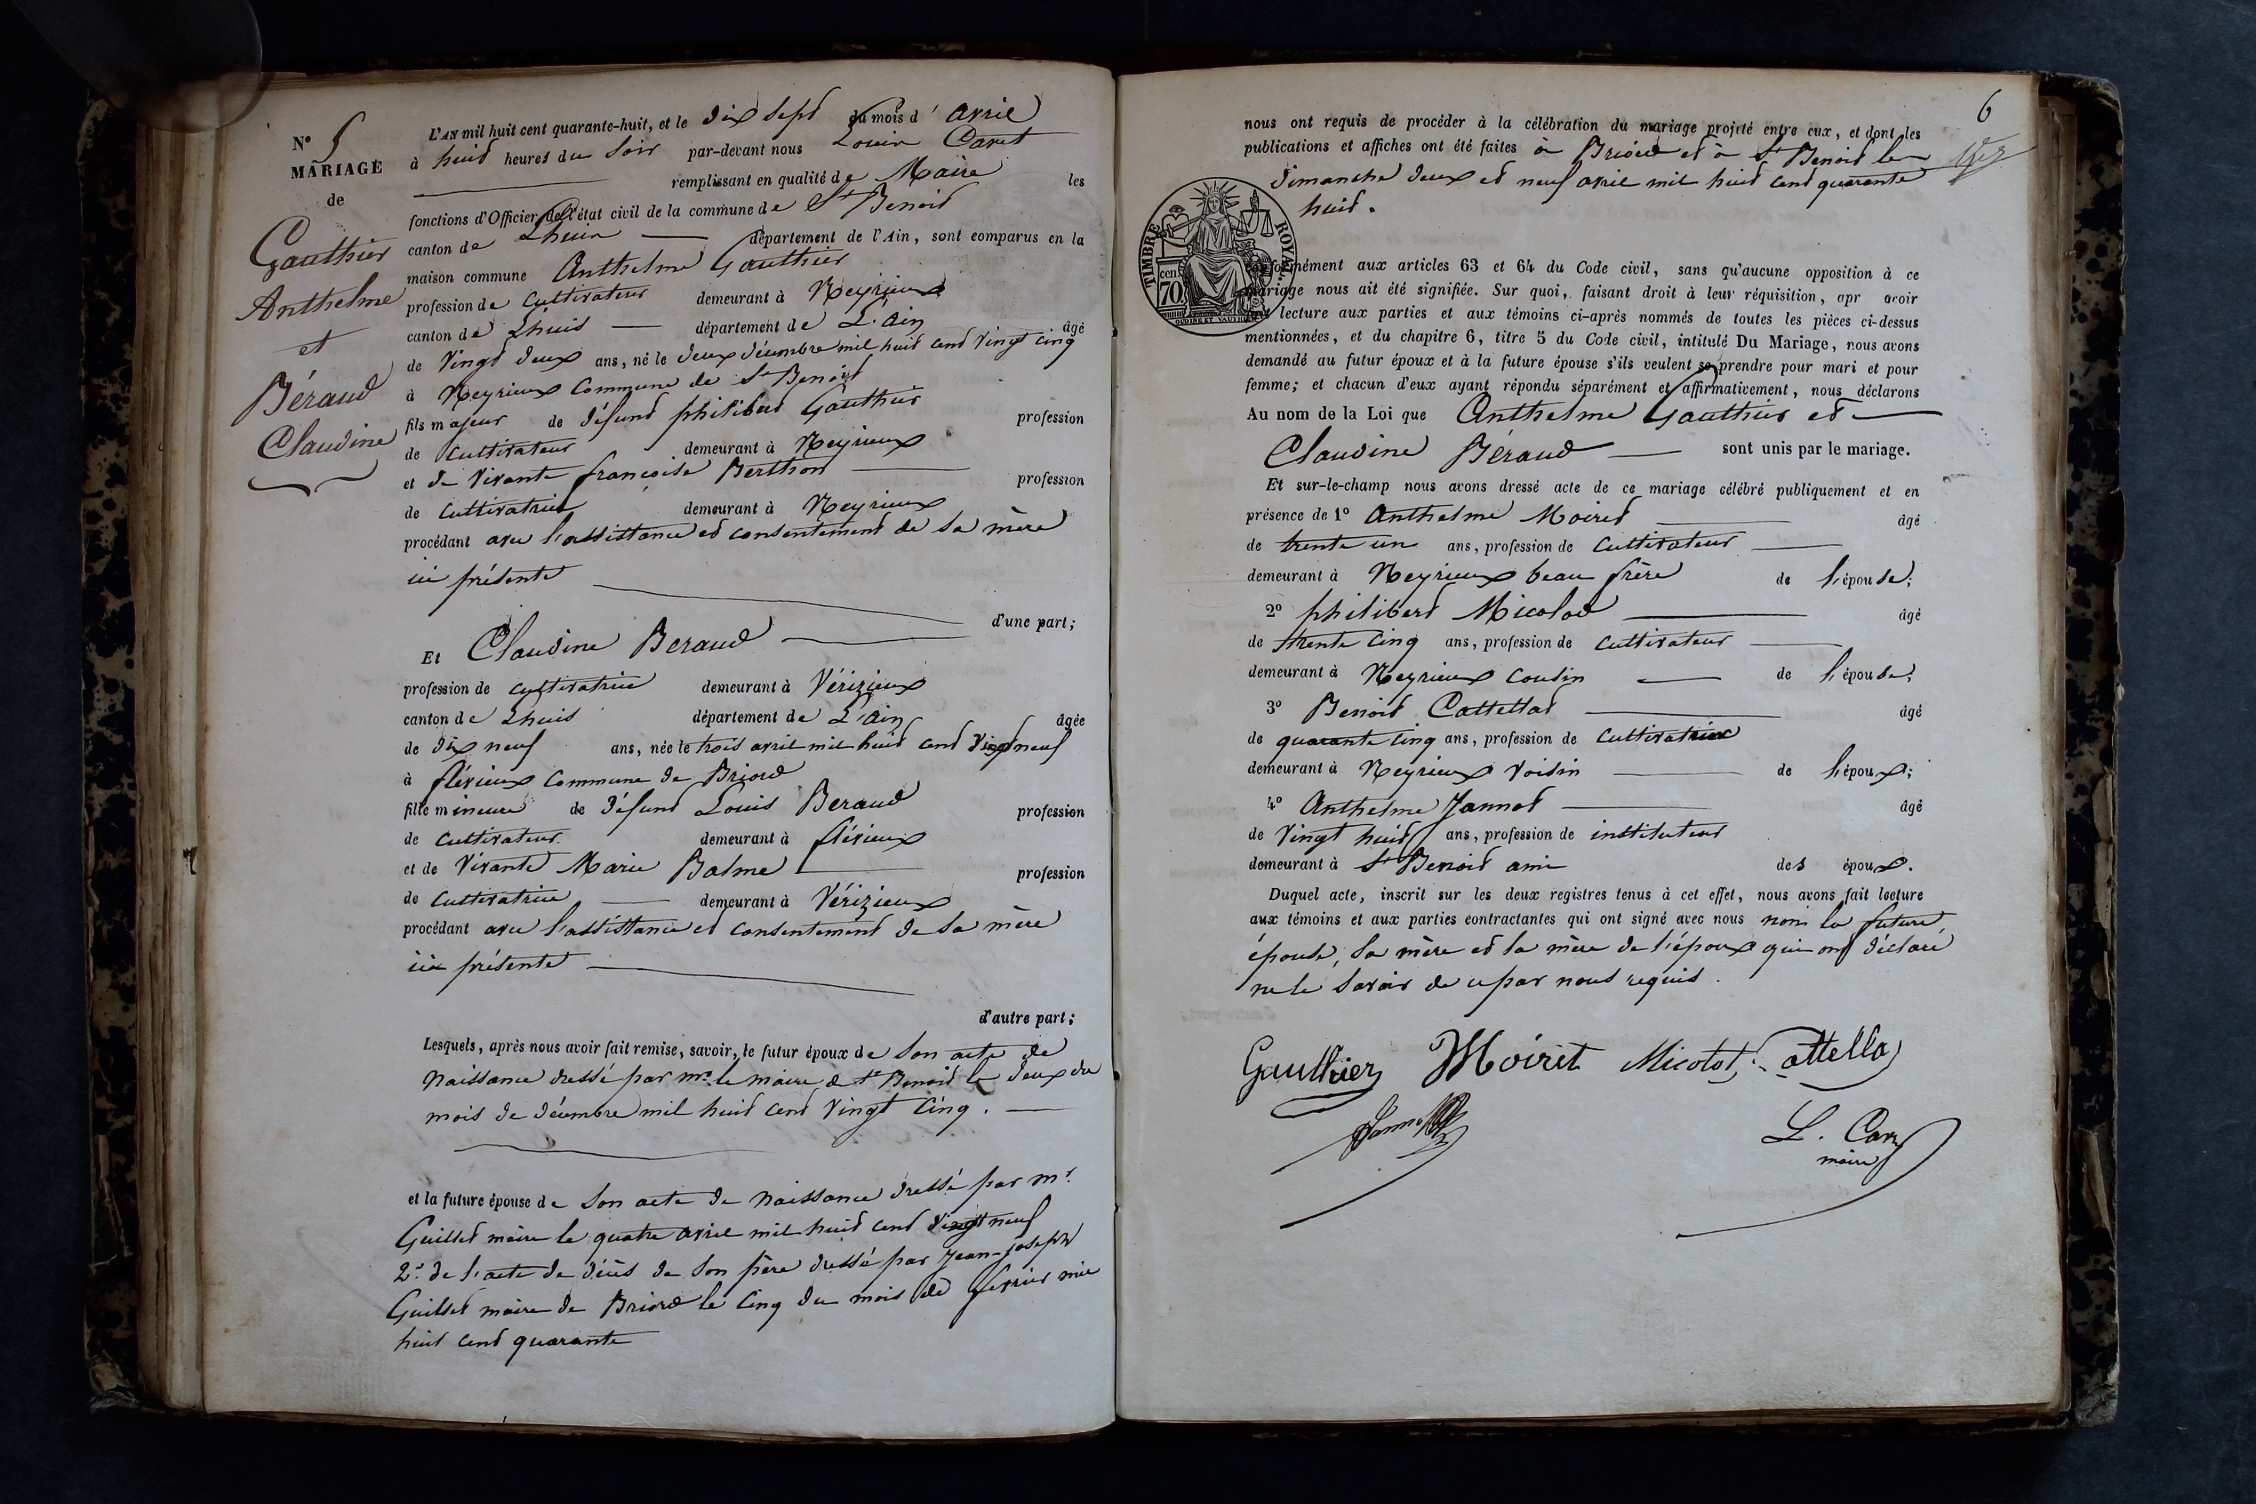 N° 5
MARIAGE
de
Gauthier
Anthelme
et
Béraud
Claudine
L'AN mil huit cent quarante-huit, et le dix sept du mois d'avril
à huit heures du soir par-devant nous Louis
remplissant en qualité de Maire les
fonctions d'Officier de l'état civil de la commune de St Benoit
canton de Lhuis département de l'Ain, sont comparus en la
maison commune Anthelme Gauthier
profession de cultivateur demeurant à Neyrieux
canton de Lhuis département de L'ain âgé
de vingt deux ans, né le deux décembre mil huit cent vingt cinq
à Neyrieux commune de St Benoit
fils majeur de défunt philibert Gauthier profession
de cultivateur demeurant à Neyrieux
et de vivante françoise Berthon profession
de cultivatrice demeurant à Neyrieux
procédant avec l'assistance et consentement de sa mère
ici présente
d'une part;
Et Claudine Beraud
profession de cultivatrice demeurant à Vérizieux
canton de Lhuis département de L'ain âgée
de dix neuf ans, née le trois avril mil huit cent vingt neuf
à flévieux commune de Briord
fille mineure de défunt Louis Beraud profession
de cultivateur demeurant à flévieux
et de vivante Marie Balme profession
de cultivatrice demeurant à Vérizieux
procédant avec l'assistance et consentement de sa mère
ici présente
d'autre part;
Lesquels, après nous avoir fait remise, savoir, le futur époux de son acte de
naissance dressé par mr. le maire de St Benoit le deux du
mois de décembre mil huit cent vingt cinq.
et la future épouse de son acte de naissance dressé par mr.
Guillet maire le quatre avril mil huit cent vingt neuf
2° de l'acte de décès de son père dressé par Jean-joseph
Guillet maire de Briord le cinq du mois de février mil
huit cent quarante
6
nous ont requis de procéder à la célébration du mariage projeté entre eux, et dont les
publications et affiches ont été faites à Briord et à St Benoit les
dimanche deux et neuf avril mil huit cent quarante
huit.
TIMBRE ROYAL
cen. 70
OUDINÉ ET VAUTHIER
conformément aux articles 63 et 64 du Code civil, sans qu'aucune opposition à ce
mariage nous ait été signifiée. Sur quoi, faisant droit à leur réquisition, apr avoir
lecture aux parties et aux témoins ci-après nommés de toutes les pièces ci-dessus
mentionnées, et du chapitre 6, titre 5 du Code civil, intitulé Du Mariage, nous avons
demandé au futur époux et à la future épouse s'ils veulent se prendre pour mari et pour
femme; et chacun d'eux ayant répondu séparément et affirmativement, nous déclarons
Au nom de la Loi que Anthelme Gauthier et
Claudine Béraud sont unis par le mariage.
Et sur-le-champ nous avons dressé acte de ce mariage célébré publiquement et en
présence de 1° Anthelme Moiret âgé
de trente un ans, profession de cultivateur
demeurant à Neyrieux beau frère de l'épouse;
2° philibert Micolod âgé
de trente cinq ans, profession de cultivateur
demeurant à Neyrieux cousin de l'épouse;
3° Benoit Cattellat âgé
de quarante cinq ans, profession de cultivateur
demeurant à Neyrieux voisin de l'époux;
4° Anthelme Jannot âgé
de vingt huit ans, profession de instituteur
demeurant à St Benoit ami des époux.
Duquel acte, inscrit sur les deux registres tenus à cet effet, nous avons fait lecture
aux témoins et aux parties contractantes qui ont signé avec nous non la future
épouse, sa mère et la mère de l'époux qui ont déclaré
ne le savoir de ce par nous requis.
Gauthier Moiret Micolot Cattella
Jannot
L. Car
maire